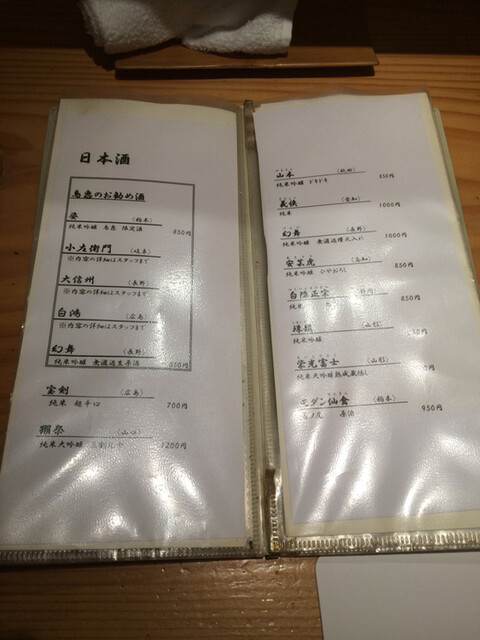 日本酒
鳥恵のお勧め酒
姿 (栃木)
純米吟醸 鳥恵 限定酒 850円
小左衛門 (岐阜)
※内容の詳細はスタッフまで
大信州 (長野)
※内容の詳細はスタッフまで
白鴻 (広島)
※内容の詳細はスタッフまで
幻舞 (長野)
純米吟醸 無濾過生原酒
宝剣 (広島)
純米 超辛口 700円
獺祭 (山口)
純米大吟醸 三割九分 1200円
山本 (秋田)
純米吟醸 ドキドキ 850円
義侠 (愛知)
純米 1000円
幻舞 (長野)
純米吟醸 無濾過瓶火入れ 1000円
安芸虎 (高知)
純米吟醸 ひやおろし 850円
白隠正宗 (静岡)
純米吟醸 850円
(山形)
純米吟醸
栄光冨士 (山形)
純米大吟醸熟成蔵隠し
モダン仙禽 (栃木)
原酒 950円